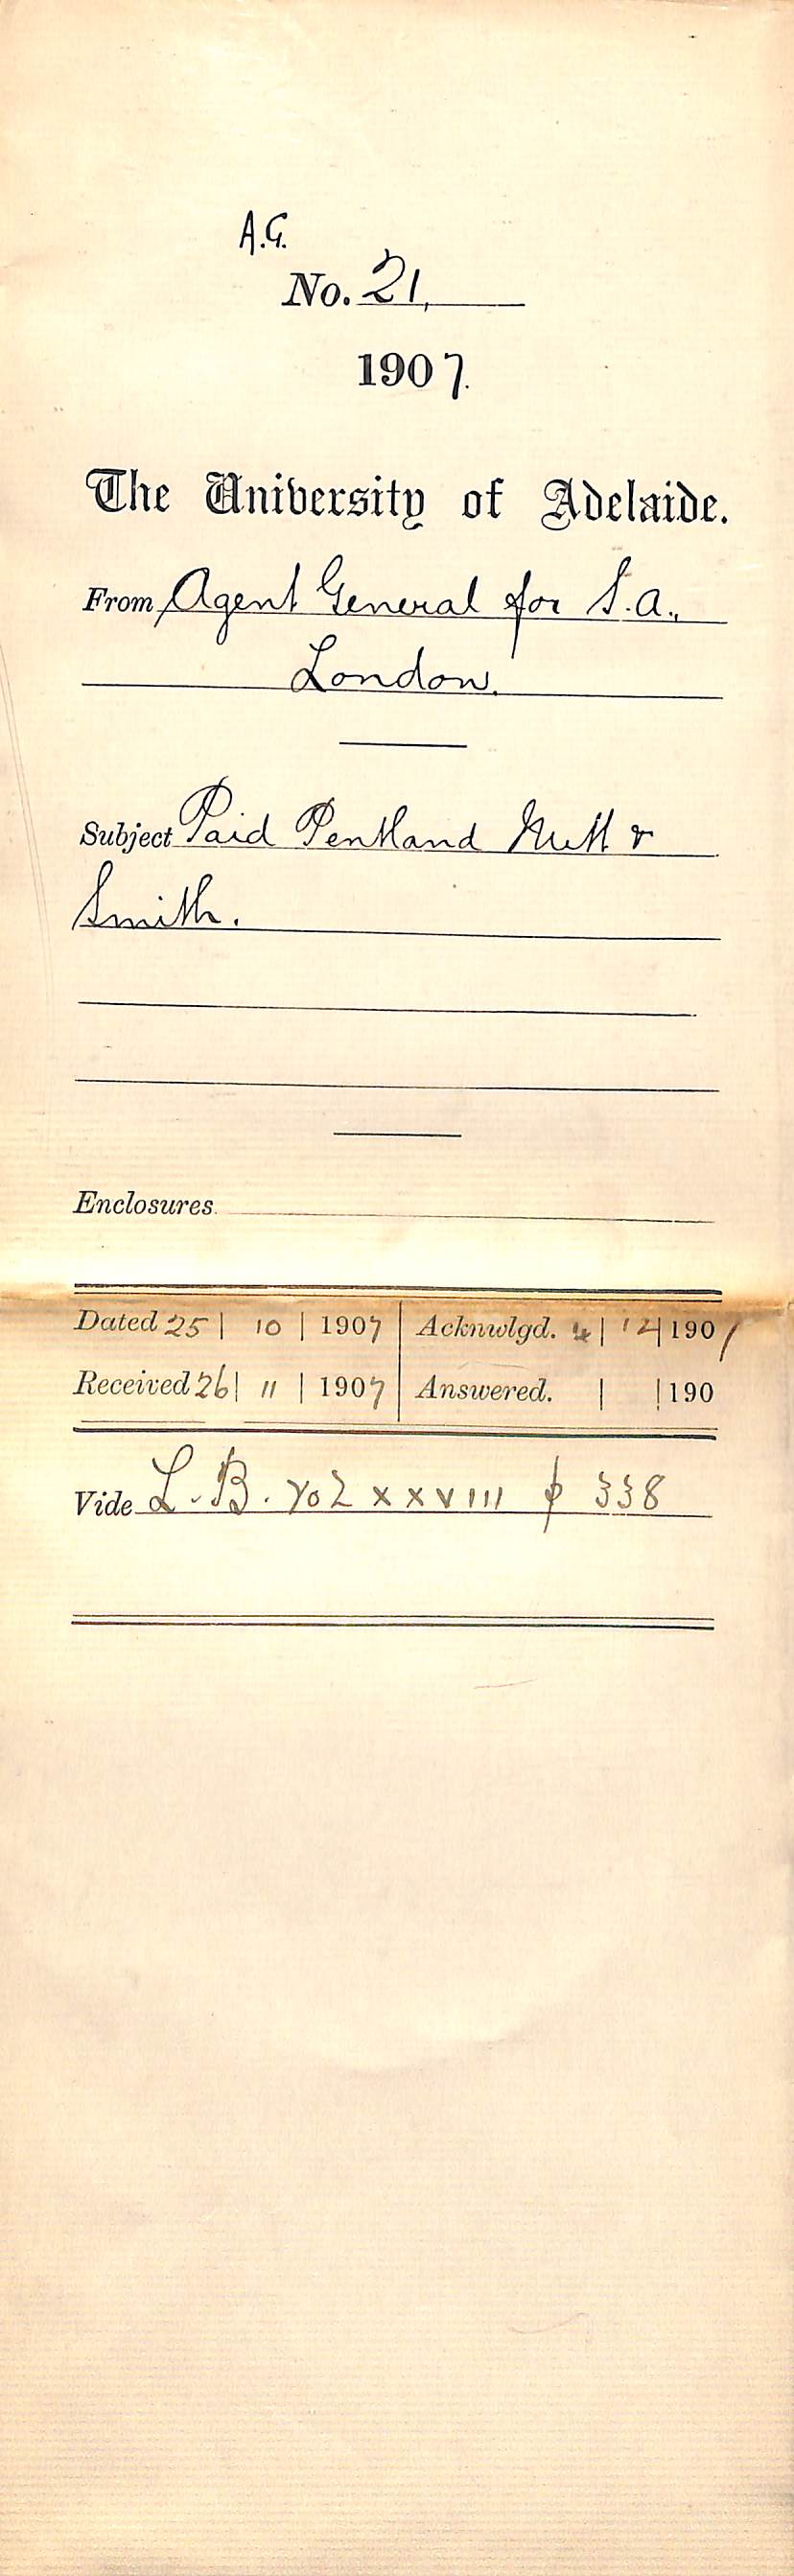 A.G.
No. 21,
1907.
The University of Adelaide.
From Agent General for S.A.,
London.
Subject Paid Pentland Nutt &
Smith.
Enclosures.
Dated 25 | 10 | 1907 | Acknwlgd. 4 | 12 | 1907
Received 26 | 11 | 1907 | Answered. | | 190
Vide L.B. Vol xxviii p 338